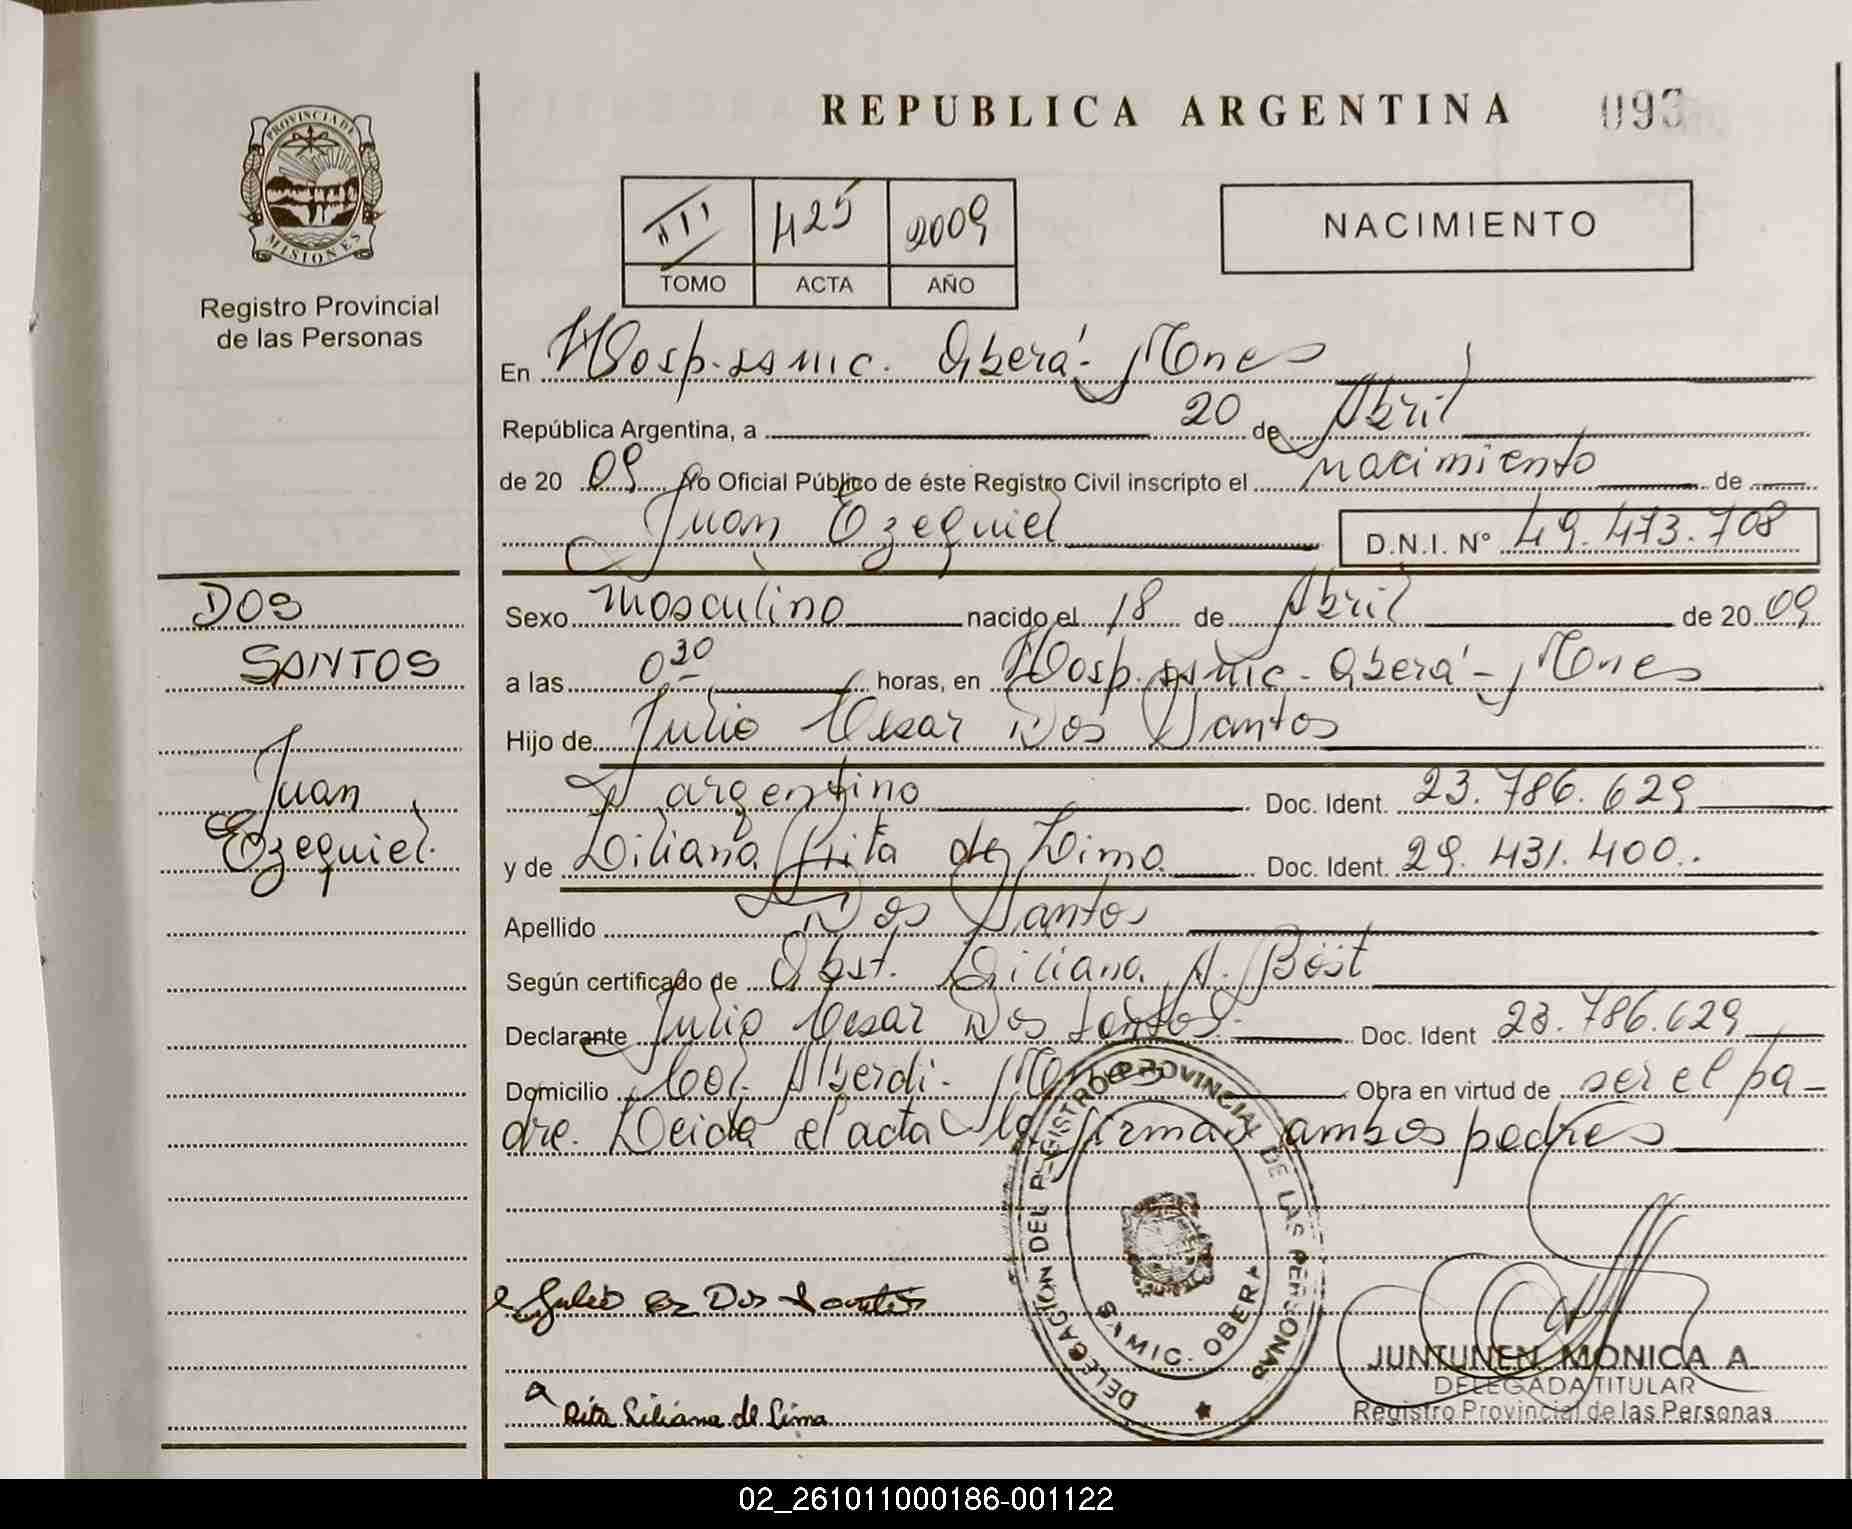 PROVINCIA DE
MISIONES
Registro Provincial
de las Personas
REPUBLICA ARGENTINA 093
III 425 2009
TOMO ACTA AÑO
NACIMIENTO
En Hosp. ssmic. Oberá - Mnes
República Argentina, a 20 de Abril
de 20 09 Yo Oficial Público de éste Registro Civil inscripto el nacimiento de
Juan Ezequiel D.N.I. Nº 49.473.708
DOS
SANTOS
Juan
Ezequiel.
Sexo masculino nacido el 18 de Abril de 20 09
a las 0 30 horas, en Hosp. ssmic - Oberá - Mnes
Hijo de Julio Cesar Dos Santos
argentino Doc. Ident. 23.786.629
y de Liliana Rita de Lima Doc. Ident. 29.431.400.
Apellido Dos Santos
Según certificado de Obst. Liliana A. Böst
Declarante Julio Cesar Dos Santos. Doc. Ident 23.786.629
Domicilio Col. Alberdi - Mnes Obra en virtud de ser el pa-
dre. Leida el acta la firman ambos padres
DELEGACION DEL REGISTRO PROVINCIAL DE LAS PERSONAS
SAMIC. OBERA
Julio Dos Santos
Rita Liliana de Lima
JUNTUNEN MONICA A.
DELEGADA TITULAR
Registro Provincial de las Personas
02_261011000186-001122